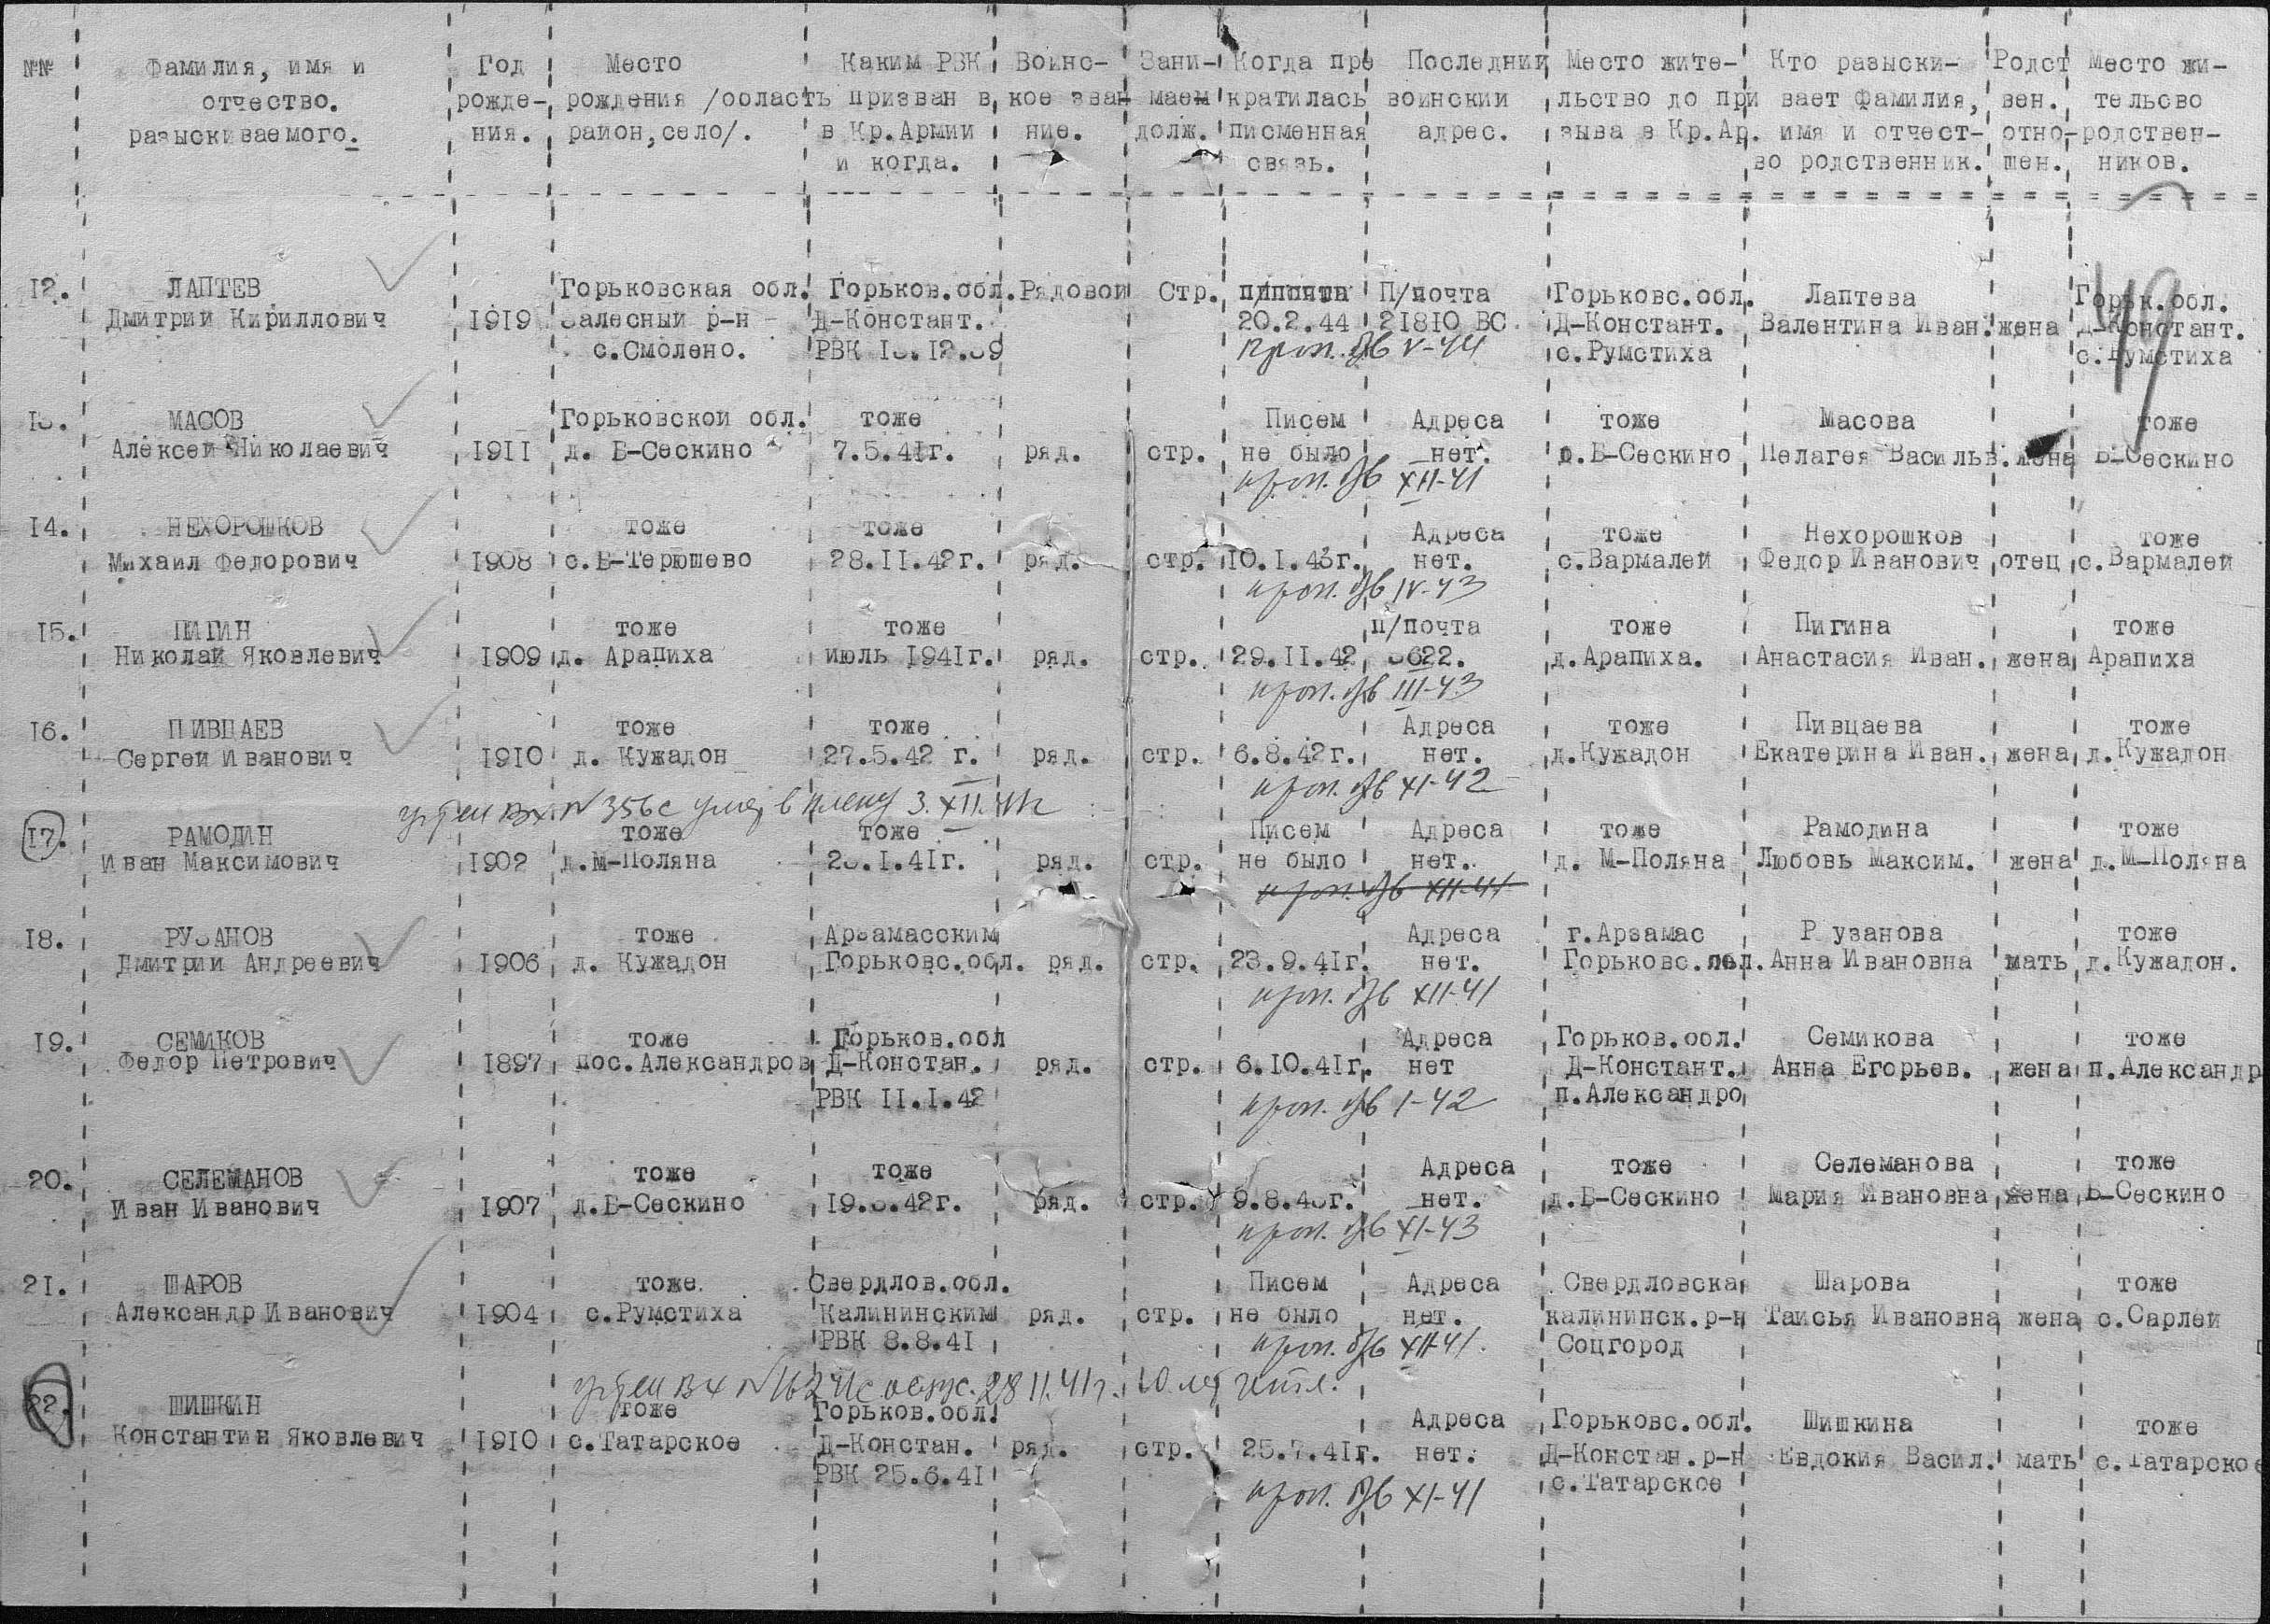 №№ Фамилия, имя и Год Место Каким РВК Воинс- Зани- Когда пре Последний Место жите- Кто разыски- Родст Место жи-
отчество. рожде- рождения /область призван в кое зван маем кратилась воинский льство до при вает фамилия, вен. тельсво
разыскиваемого. ния. район,село/. в Кр.Армии ние. долж. писменная адрес. зыва в Кр.Ар. имя и отчест- отно- родствен-
и когда. связь. во родственник. шен. ников.
49
12. ЛАПТЕВ Горьковская обл. Горьков.обл. Рядовой Стр. П/почта Горьковс.обл. Лаптева Горьк.обл.
Дмитрий Кириллович 1919 Залесный р-н Д-Констант. 20.2.44 21810 ВС. Д-Констант. Валентина Иван. жена Д-Констант.
с.Смолено. РВК проп. б/в V-44 с.Румстиха с.Румстиха
13. МАСОВ Горьковской обл. тоже Писем Адреса тоже Масова тоже
Алексей Николаевич 1911 д. Б-Сескино 7.5.41г. ряд. стр. не было нет. д.Б-Сескино Пелагея Васильв. жена Б-Сескино
проп. б/в XII-41
14. НЕХОРОШКОВ тоже тоже Адреса тоже Нехорошков тоже
Михаил Федорович 1908 с.Б-Терюшево 28.11.42г. ряд. стр. 10.1.43г. нет. с.Вармалей Федор Иванович отец с.Вармалей
проп. б/в IV-43
15. ПИГИН тоже тоже п/почта тоже Пигина тоже
Николай Яковлевич 1909 д. Арапиха июль 1941г. ряд. стр. 29.11.42 д.Арапиха. Анастасия Иван. жена Арапиха
проп. б/в III-43
16. ПИВЦАЕВ тоже тоже Адреса тоже Пивцаева тоже
Сергей Иванович 1910 д. Кужадон 27.5.42 г. ряд. стр. 6.8.42г. нет. д.Кужадон Екатерина Иван. жена д.Кужадон
проп. б/в XI-42
Вх. N 356с в плену 3.XII.41г
17. РАМОДИН тоже тоже Писем Адреса тоже Рамодина тоже
Иван Максимович 1902 д.М-Поляна ряд. стр. не было нет. д. М-Поляна Любовь Максим. жена д.М-Поляна
проп. б/в XII-41
18. РУЗАНОВ тоже Арзамасским Адреса г.Арзамас Рузанова тоже
Дмитрий Андреевич 1906 д. Кужадон Горьковс.обл. ряд. стр. 23.9.41г. нет. Горьковс.обл. Анна Ивановна мать д.Кужадон.
проп. б/в XII-41
19. СЕМИКОВ тоже Горьков.обл Адреса Горьков.обл. Семикова тоже
Федор Петрович 1897 пос.Александров Д-Констан. ряд. стр. 6.10.41г. нет Д-Констант. Анна Егорьев. жена п.Александр
РВК 11.1.42 п.Александро
проп. б/в I-42
20. СЕЛЕМАНОВ тоже тоже Адреса тоже Селеманова тоже
Иван Иванович 1907 д.Б-Сескино ряд. стр. нет. д.Б-Сескино Мария Ивановна жена Б-Сескино
проп. б/в XI-43
21. ШАРОВ тоже Свердлов.обл. Писем Адреса Свердловска Шарова тоже
Александр Иванович 1904 с.Румстиха Калининским ряд. стр. не было нет. калининск.р-н Таисья Ивановна жена с.Сарлей
РВК 8.8.41 проп. б/в XII-41. Соцгород
Вх N 28.11.41г. 10 лет
22. ШИШКИН тоже Горьков.обл. Адреса Горьковс.обл. Шишкина тоже
Константин Яковлевич 1910 с.Татарское Д-Констан. ряд. стр. 25.7.41г. нет. Д-Констан.р-н Евдокия Васил. мать с.Татарское
РВК 25.6.41 с.Татарское
проп. б/в XI-41